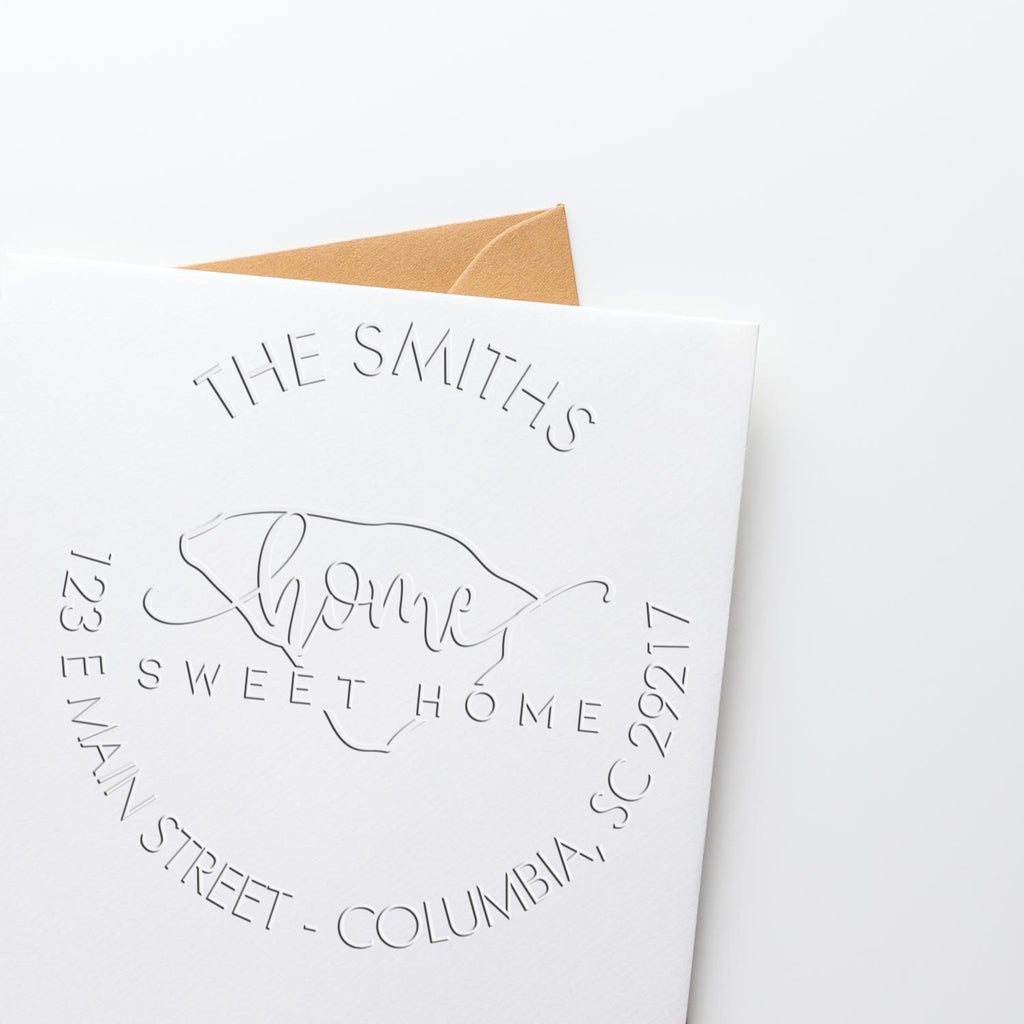 THE SMITHS
home
SWEET HOME
123 E MAIN STREET - COLUMBIA, SC 29217